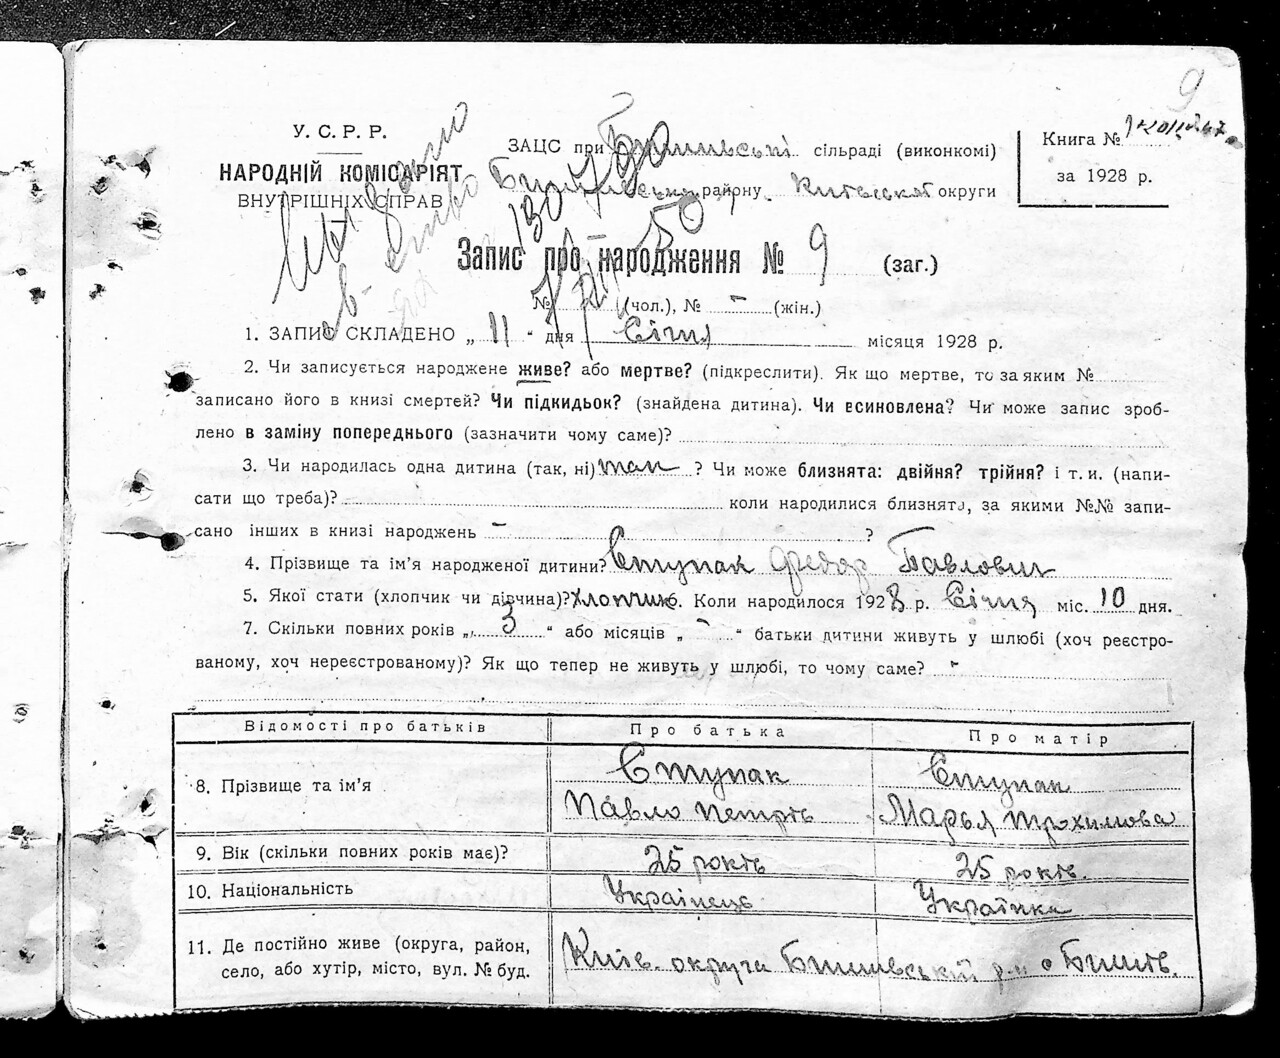 9
У. С. Р. Р.
НАРОДНІЙ КОМІСАРІЯТ
ВНУТРІШНІХ СПРАВ
ЗАЦС при Бишівській сільраді (виконкомі)
Бишівського району Київської округи
Книга №
за 1928 р.
Запис про народження № 9 (заг.)
№ (чол.), № – (жін.)
1. ЗАПИС СКЛАДЕНО „ 11 “ дня Січня місяця 1928 р.
2. Чи записується народжене живе? або мертве? (підкреслити). Як що мертве, то за яким №
записано його в книзі смертей? Чи підкидьок? (знайдена дитина). Чи всиновлена? Чи може запис зроб-
лено в заміну попереднього (зазначити чому саме)?
3. Чи народилась одна дитина (так, ні) так ? Чи може близнята: двійня? трійня? і т. и. (напи-
сати що треба)? коли народилися близнята, за якими №№ запи-
сано інших в книзі народжень – ?
4. Прізвище та ім’я народженої дитини? Ступак Федор Павлович
5. Якої стати (хлопчик чи дівчина)? хлопчик 6. Коли народилося 1928 р. Січня міс. 10 дня.
7. Скільки повних років „ 3 “ або місяців „ – “ батьки дитини живуть у шлюбі (хоч реєстро-
ваному, хоч нереєстрованому)? Як що тепер не живуть у шлюбі, то чому саме? –
Відомості про батьків Про батька Про матір
8. Прізвище та ім’я Ступак Ступак
Павло Петрів Марья Трохимова
9. Вік (скільки повних років має)? 25 років 25 років.
10. Національність Українець Українка
11. Де постійно живе (округа, район,
село, або хутір, місто, вул. № буд.
Київ. округа Бишівській р-н с Бишів.